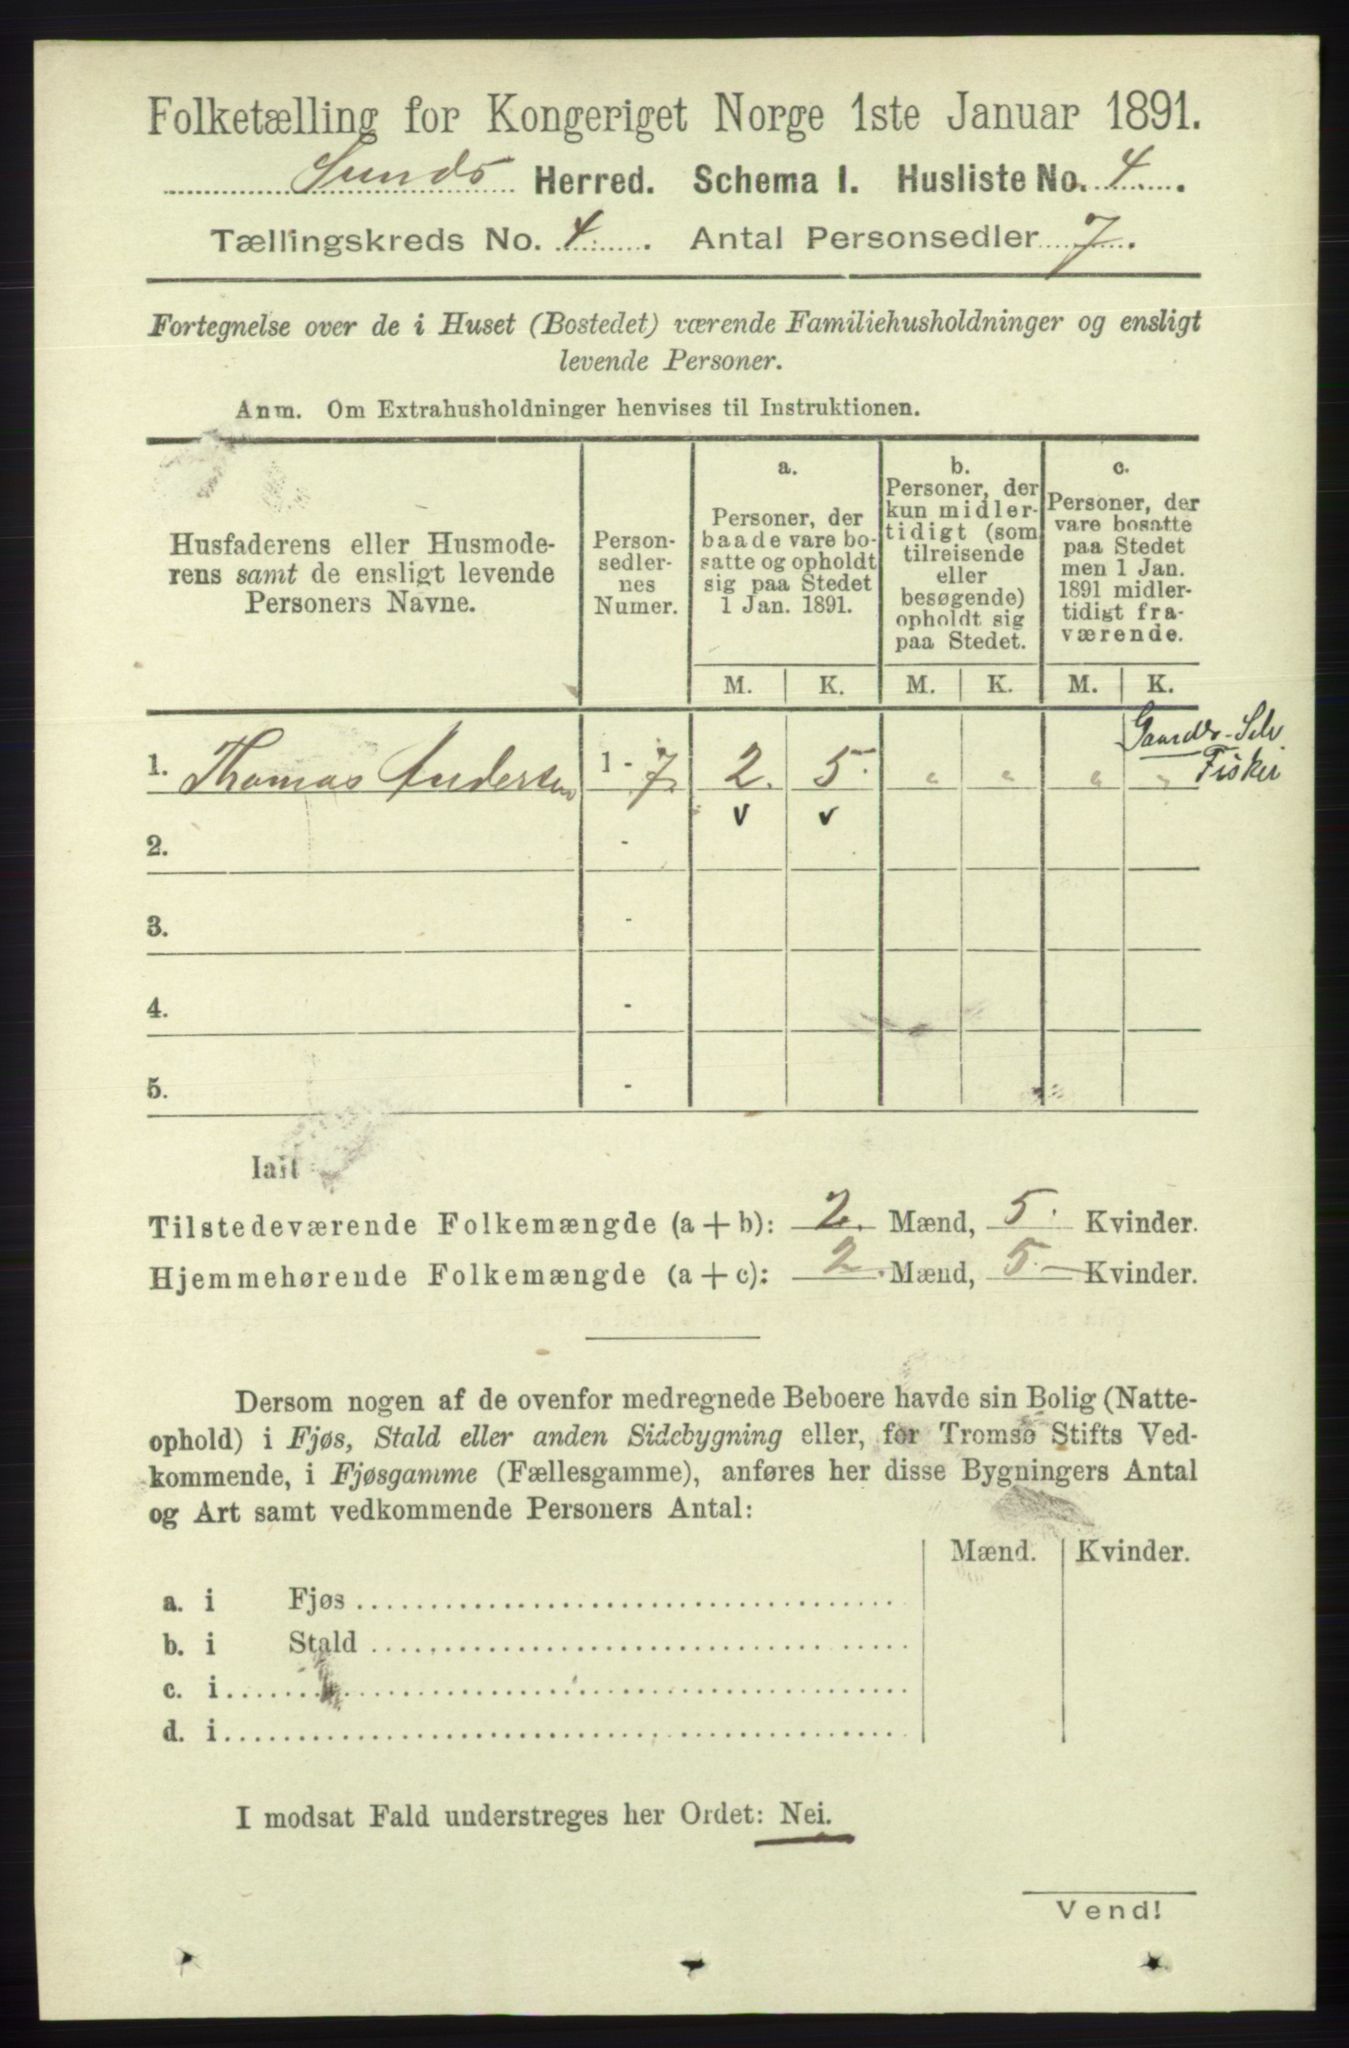 Folketælling for Kongeriget Norge 1ste Januar 1891.
Sunds Herred. Schema I. Husliste No. 4.
Tællingskreds No. 4. Antal Personsedler 7.
Fortegnelse over de i Huset (Bostedet) værende Familiehusholdninger og ensligt
levende Personer.
Anm. Om Extrahusholdninger henvises til Instruktionen.
Husfaderens eller Husmode-
rens samt de ensligt levende
Personers Navne.
Person-
sedler-
nes
Numer.
a.
Personer, der
baade vare bo-
satte og opholdt
sig paa Stedet
1 Jan. 1891.
b.
Personer, der
kun midler-
tidigt (som
tilreisende
eller
besøgende)
opholdt sig
paa Stedet.
c.
Personer, der
vare bosatte
paa Stedet
men 1 Jan.
1891 midler-
tidigt fra-
værende.
M. K. M. K. M. K.
Gaardbr. Selv
1. Thomas Andersen 1 - 7 2. 5. " " " " Fisker
v v
2. -
3. -
4. -
5. -
Ialt
Tilstedeværende Folkemængde (a + b): 2. Mænd, 5. Kvinder.
Hjemmehørende Folkemængde (a + c): 2. Mænd, 5. Kvinder.
Dersom nogen af de ovenfor medregnede Beboere havde sin Bolig (Natte-
ophold) i Fjøs, Stald eller anden Sidebygning eller, for Tromsø Stifts Ved-
kommende, i Fjøsgamme (Fællesgamme), anføres her disse Bygningers Antal
og Art samt vedkommende Personers Antal:
Mænd. Kvinder.
a. i Fjøs
b. i Stald
c. i
d. i
I modsat Fald understreges her Ordet: Nei.
Vend!